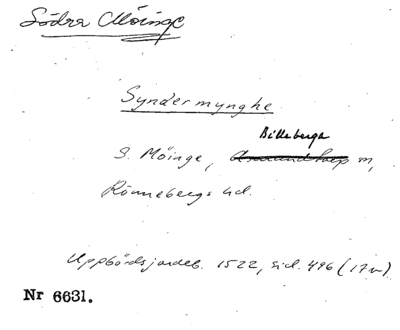 Södra Möinge
Syndermynghe
Billeberga
S. Möinge, Asmundtorp m,
Rönnebergs hd.
Uppbördsjordeb. 1522, sid. 496 (17v)
Nr 6631.